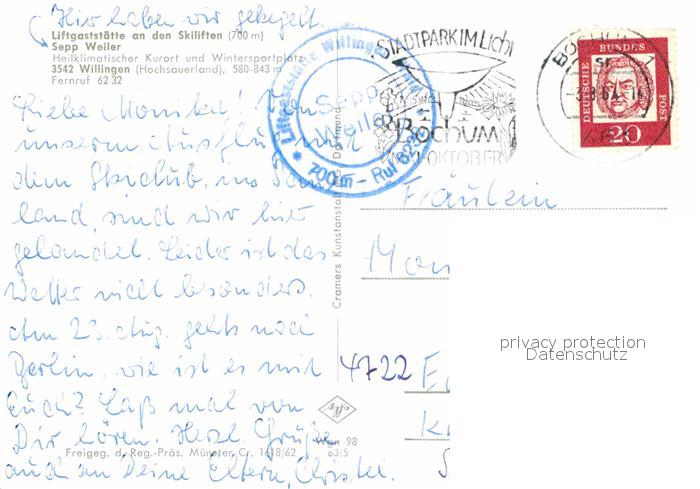 Hier haben wir gekegelt.
Liftgaststätte an den Skiliften (700 m)
Sepp Weiler
Heilklimatischer Kurort und Wintersportplatz
3542 Willingen (Hochsauerland), 580-843 m
Fernruf 62 32
Liebe Monika! Von
unserm Ausflug mit
dem Skiclub, ins
land, sind wir hier
gelandet. Leider ist das
Wetter nicht besonders.
Am 23. Aug. gehts nach
Berlin, wie ist es mit
Euch? Laß mal von
Dir hören. Herzl. Grüße
auch an Deine Eltern, Christel.
Freigeg. d. Reg.-Präs. Münster, Cr. 1618/62
Liftgaststätte Willingen
Sepp
Weiler
700m - Ruf 6232
Cramers Kunstanstalt Dortmund
98
63/5
STADTPARK IM LICHT
BOCHUM
OKTOBER
BOCHUM
DEUTSCHE BUNDES POST
20
Fräulein
Mon
4722 E
privacy protection
Datenschutz